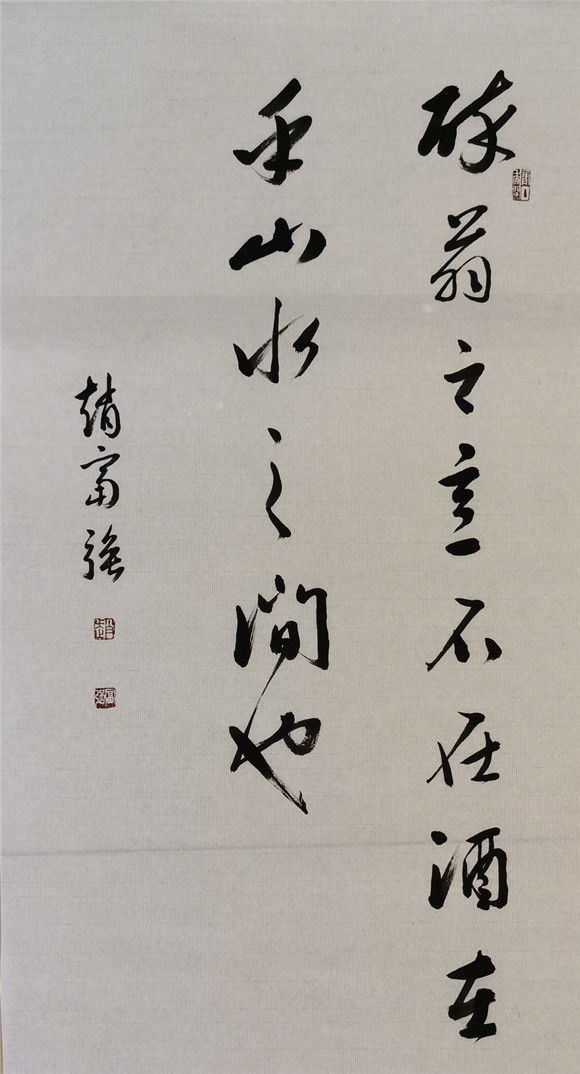 醉翁之意不在酒在
乎山水之間也
趙富強